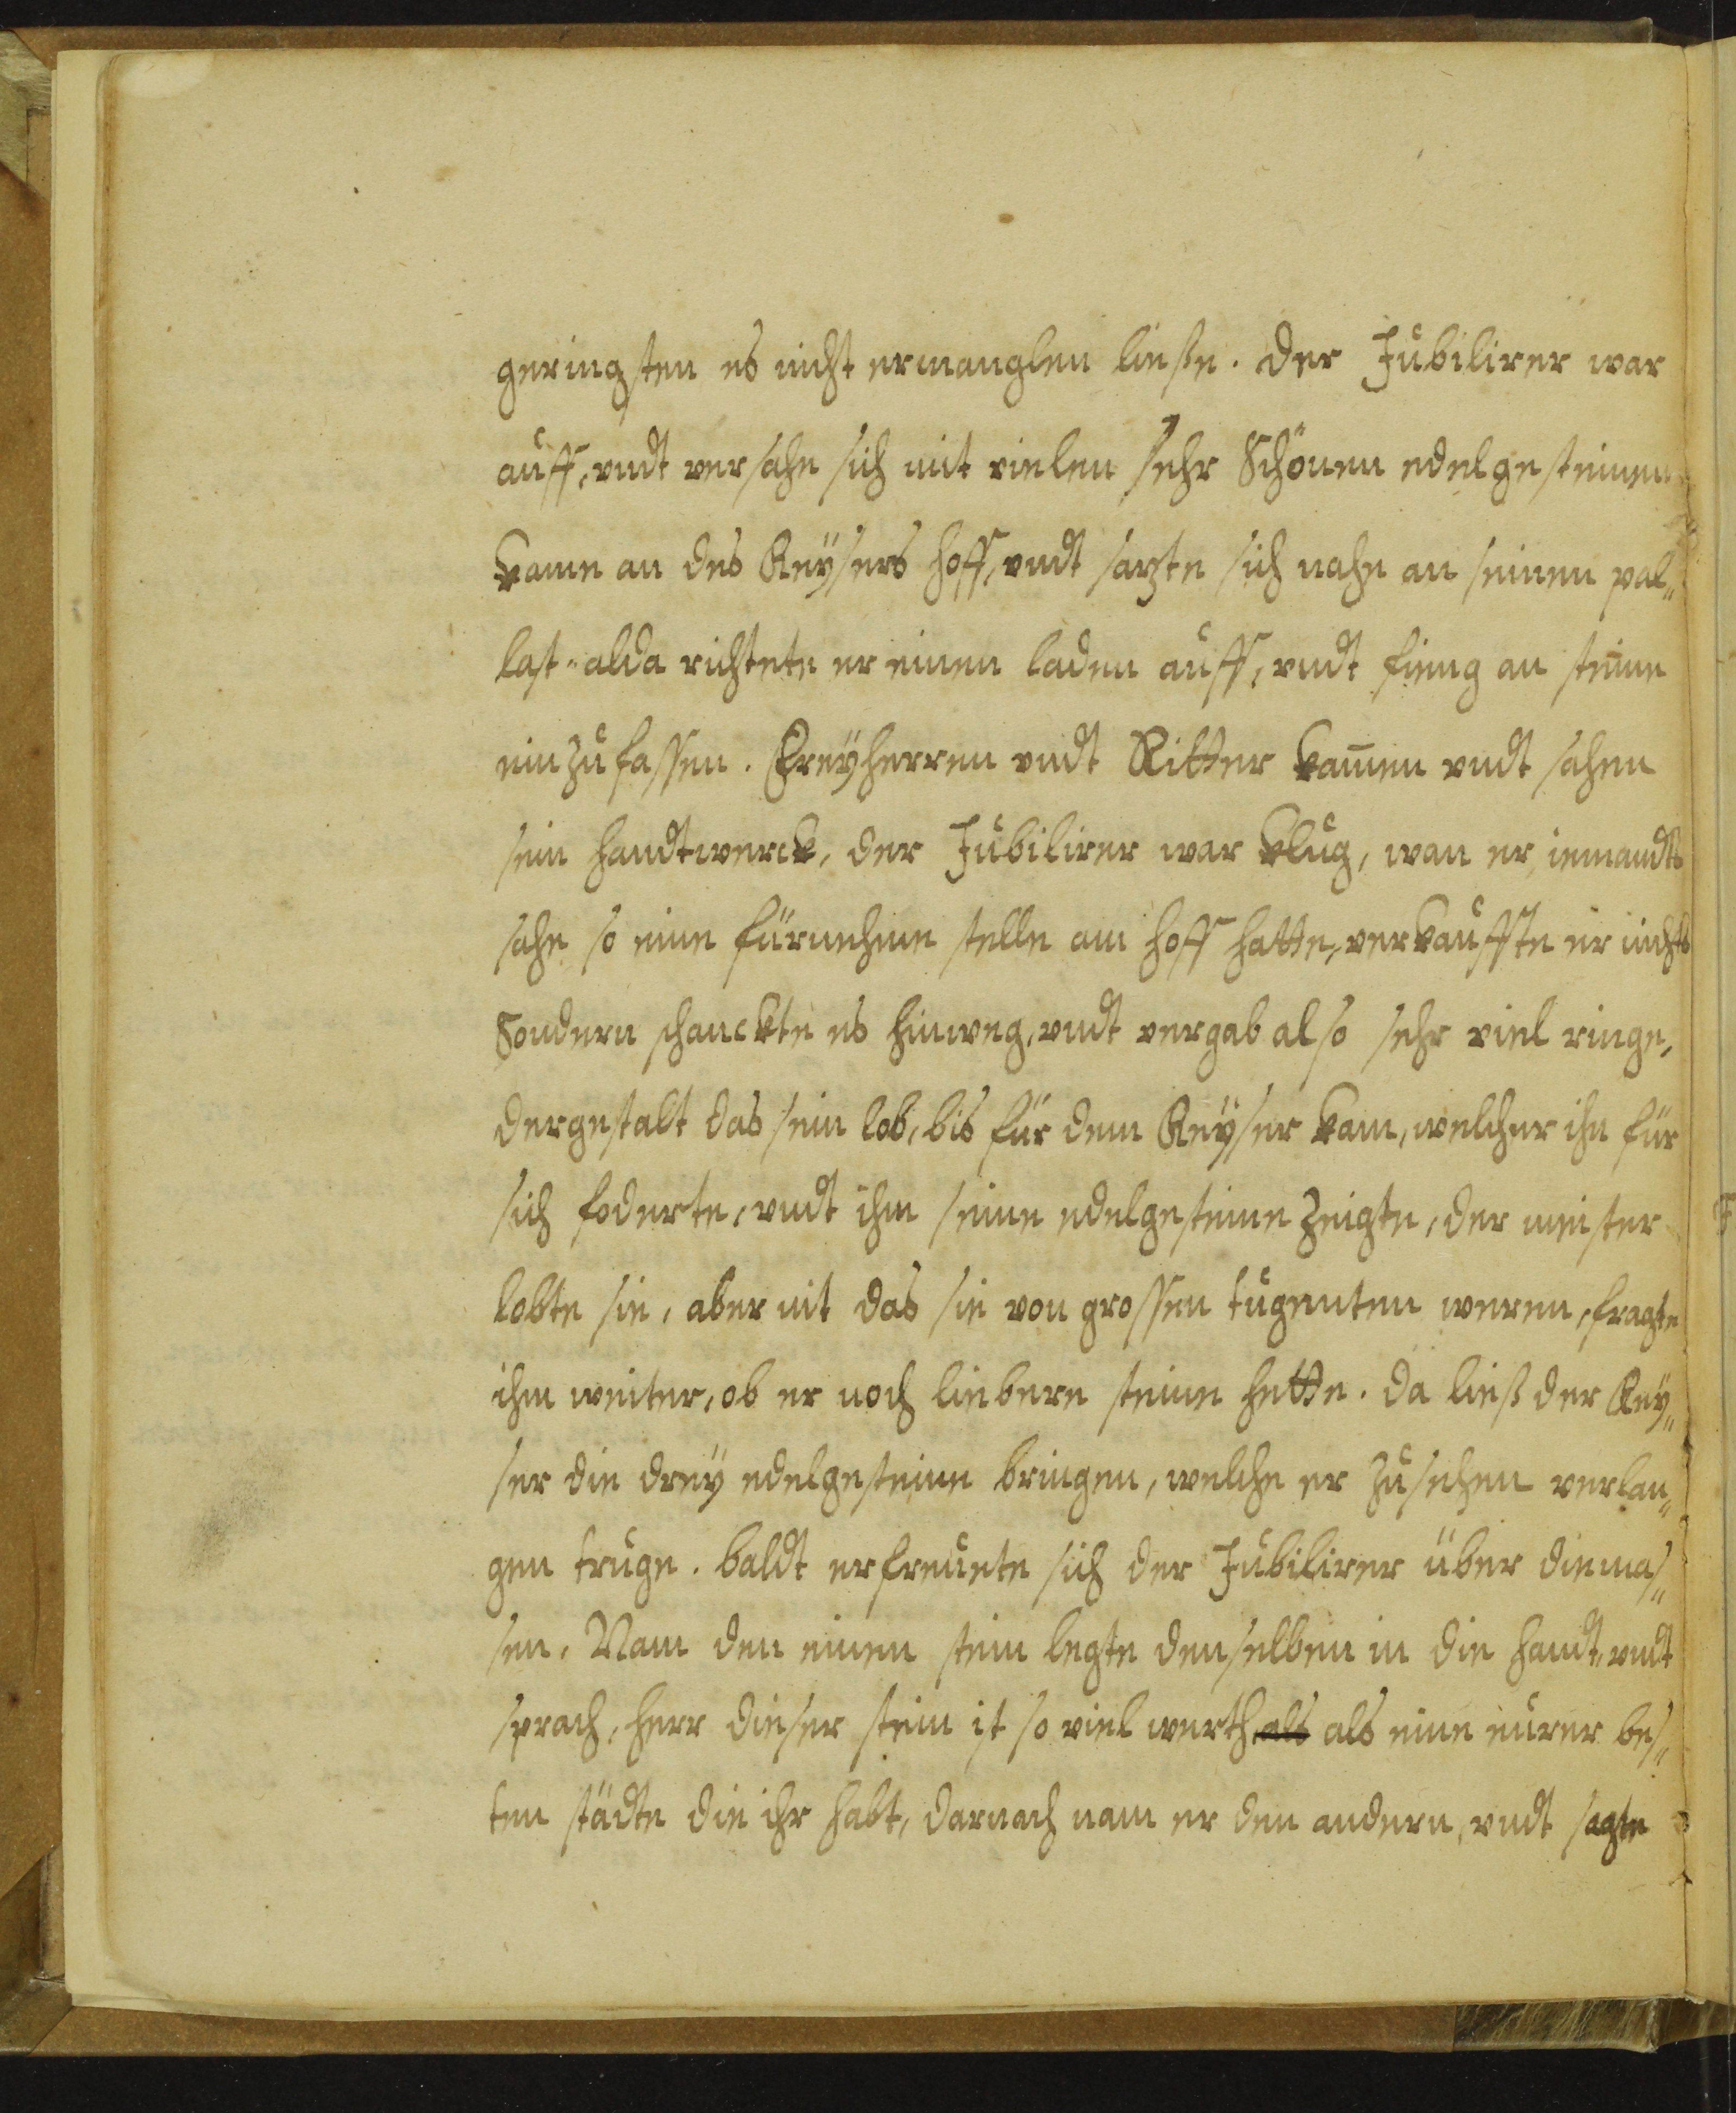 geringsten es nicht ermanglen ließe. der Jubilirer war
auff, vndt versahe sich mit vielen sehr Schönen edelgesteinen
kame an des Keÿsers hoff, vndt sazte sich nahe an seinen pal„
last alda richtete er einen laden auff, vndt fieng an steine
einzufassen. Freÿherren vndt Ritter kam̄en vndt sahen
sein handtwerck, der Jubilirer war klug, wan er iemandts
sahe so eine fürnehme stelle am hoff hatte, verkauffte er nichts
Sondern schanckte es hinweg, vndt vergab also sehr viel ringe,
dergestalt das sein lob, bis für dem Keÿser kam, welcher ihn für
sich foderte, vndt ihm seine edelgesteine zeigte, der meister
lobte sie, aber nit das sie von grossen tugenten weren, fragte
ihm weiter, ob er noch liebere steine hette. da ließ der Keÿ„
ser die dreÿ edelgesteine bringen, welche er zusehen verlan„
gen truge. baldt erfreuete sich der Jubilirer über die mas„
sen, Nam den einen stein legte denselben in die handt, vndt
sprach, herr dieser stein ist so viel werth als als eine eurer bes„
ten städte die ihr habt, darnach nam er den andern, vndt sagte